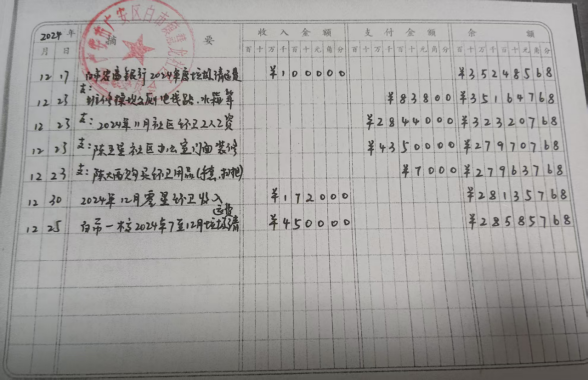 2024年 摘 要 收入金额 支付金额 余 额
月 日 百十万千百十元角分 百十万千百十元角分 百十万千百十元角分
12 17 银行2024年度垃圾清运费 ¥100000 ¥35248568
12 23 支: 电线路、水箱等 ¥83800 ¥35164768
12 23 支:2024年11月社区环卫工人工资 ¥2844000 ¥32320768
12 23 支: 社区办公室门面装修 ¥4350000 ¥27970768
12 23 支: 购买环卫用品 ¥7000 ¥27963768
12 30 2024年12月零星环卫收入 ¥172000 ¥28135768
运费
12 25 白市一校2024年7至12月垃圾清 ¥450000 ¥28585768